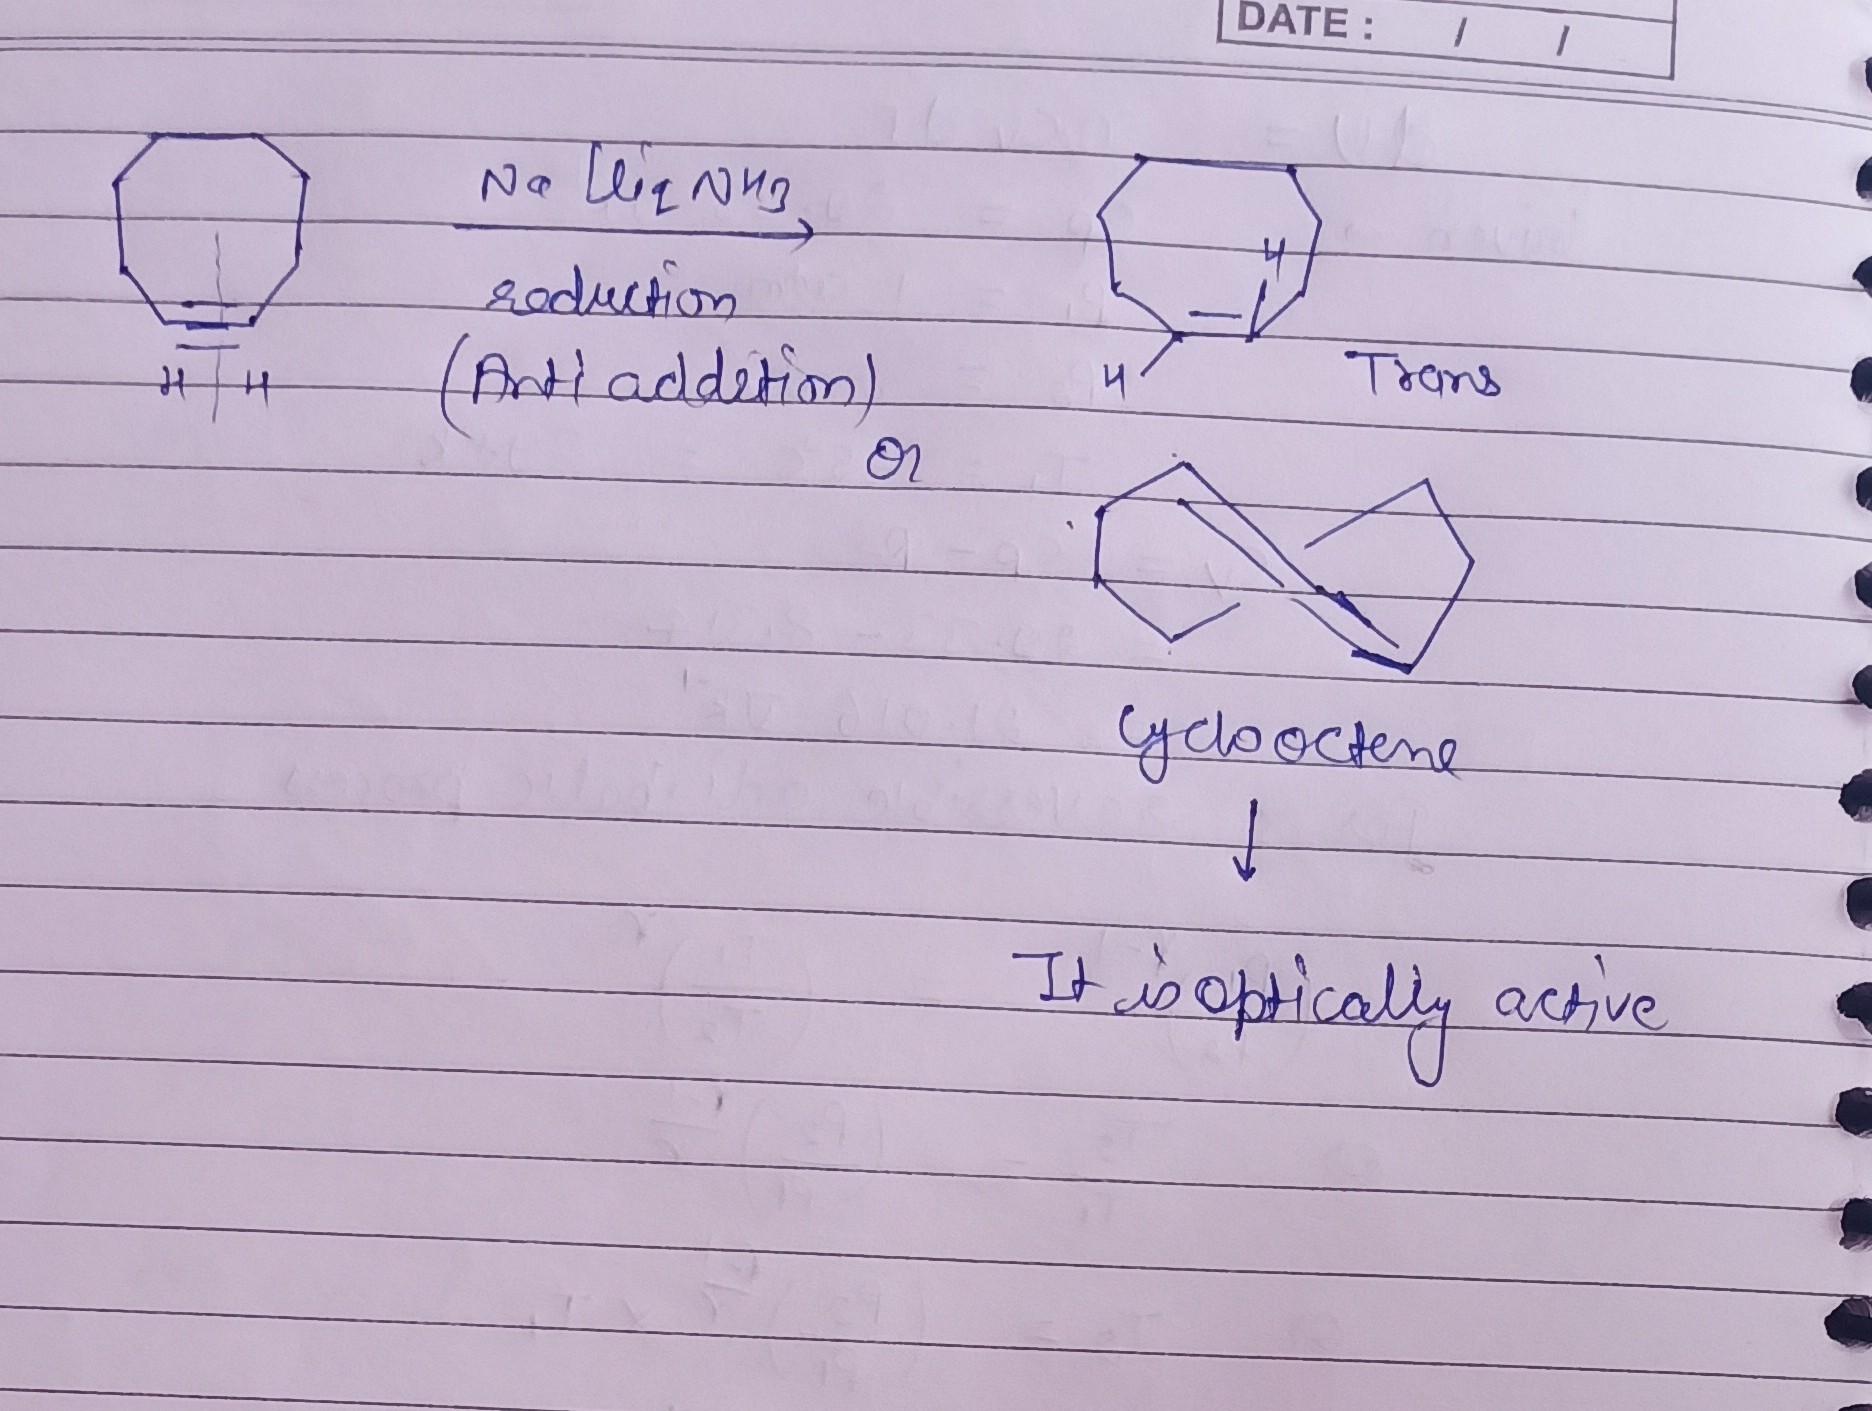 DATE : / /
Na | liq NH3
reduction
(Anti addition)
H H
H
H
Trans
or
Cyclooctene
↓
It is optically active